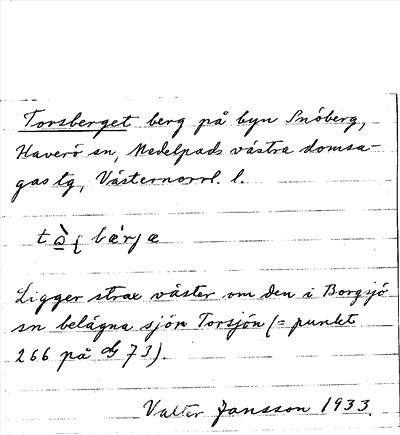 Torsberget berg på byn Snöberg,
Haverö sn, Medelpads västra domsa-
gas tg, Västernorrl. l.
Ligger strax väster om den i Borgsjö
sn belägna sjön Torsjön (= punkt
266 på 73).
Valter Jansson 1933.